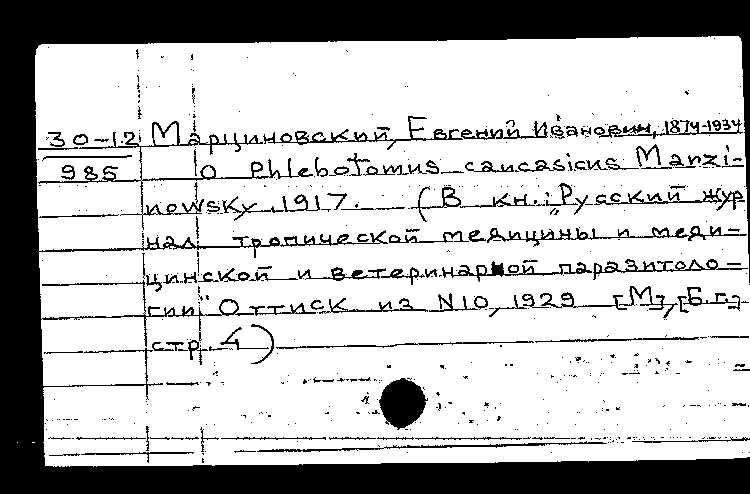 30-12 Марциновский, Евгений Иванович, 1874-1934
985 О Phlebotomus caucasicus Marzi-
nowsky, 1917. (В кн.: "Русский жур
нал тропической медицины и меди-
цинской и ветеринарной паразитоло-
гии" Оттиск из N10, 1929 [М], [б.г.]
стр. 4)